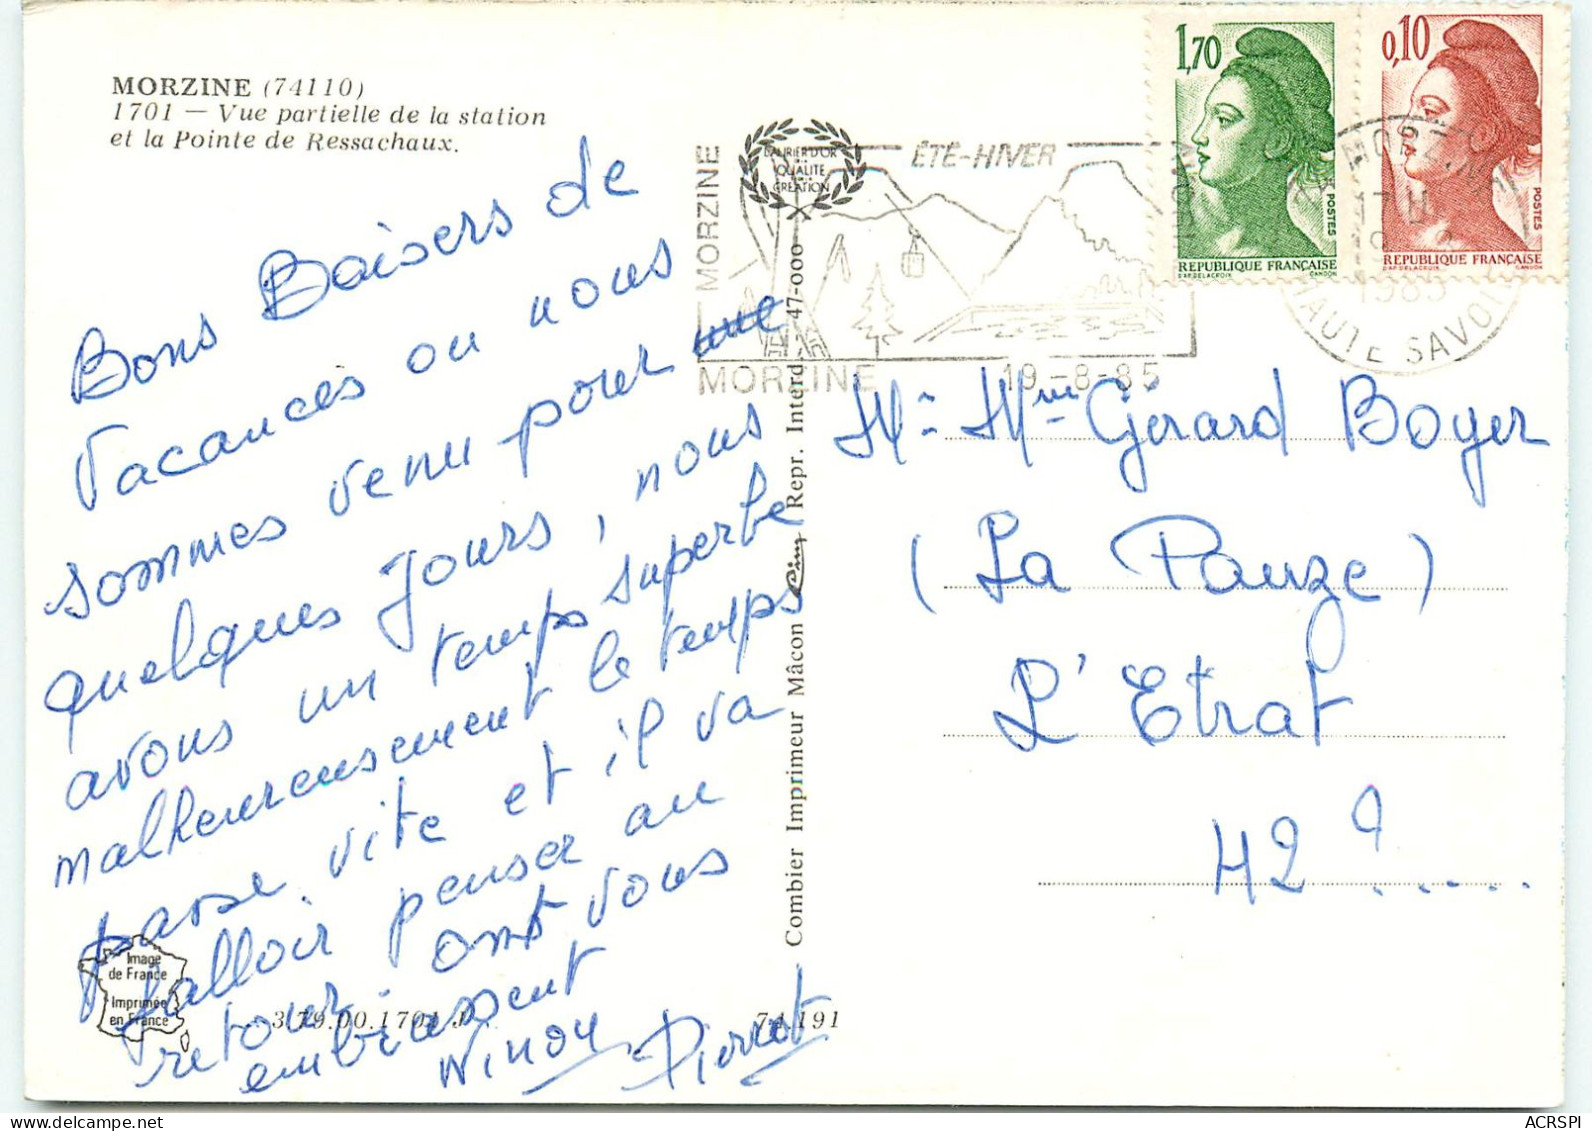 MORZINE (74110)
1701 — Vue partielle de la station
et la Pointe de Ressachaux.
Bons Baisers de
Vacances ou nous
sommes venu pour une
quelques jours, nous
avons un temps superbe
malheureusement le temps
passe vite et il va
falloir penser au
retour. ont vous
embrassent
Ninou Pierrot
Image
de France
Imprimée
en France
3.79.00.1701 J
74 191
Combier Imprimeur Mâcon Cim Repr. Interd. 47-000
LAURIER D'OR
QUALITÉ
CRÉATION
MORZINE
ÉTÉ-HIVER
MORZINE
19-8-85
74 MORZINE
17 H
19-8
1985
HAUTE SAVOIE
1,70
POSTES
RÉPUBLIQUE FRANÇAISE
D'AP. DELACROIX GANDON
0,10
POSTES
RÉPUBLIQUE FRANÇAISE
D'AP. DELACROIX GANDON
Mr Mme Gérard Boyer
(La Pauze)
L'Etrat
42 ?.....
ACRSPI